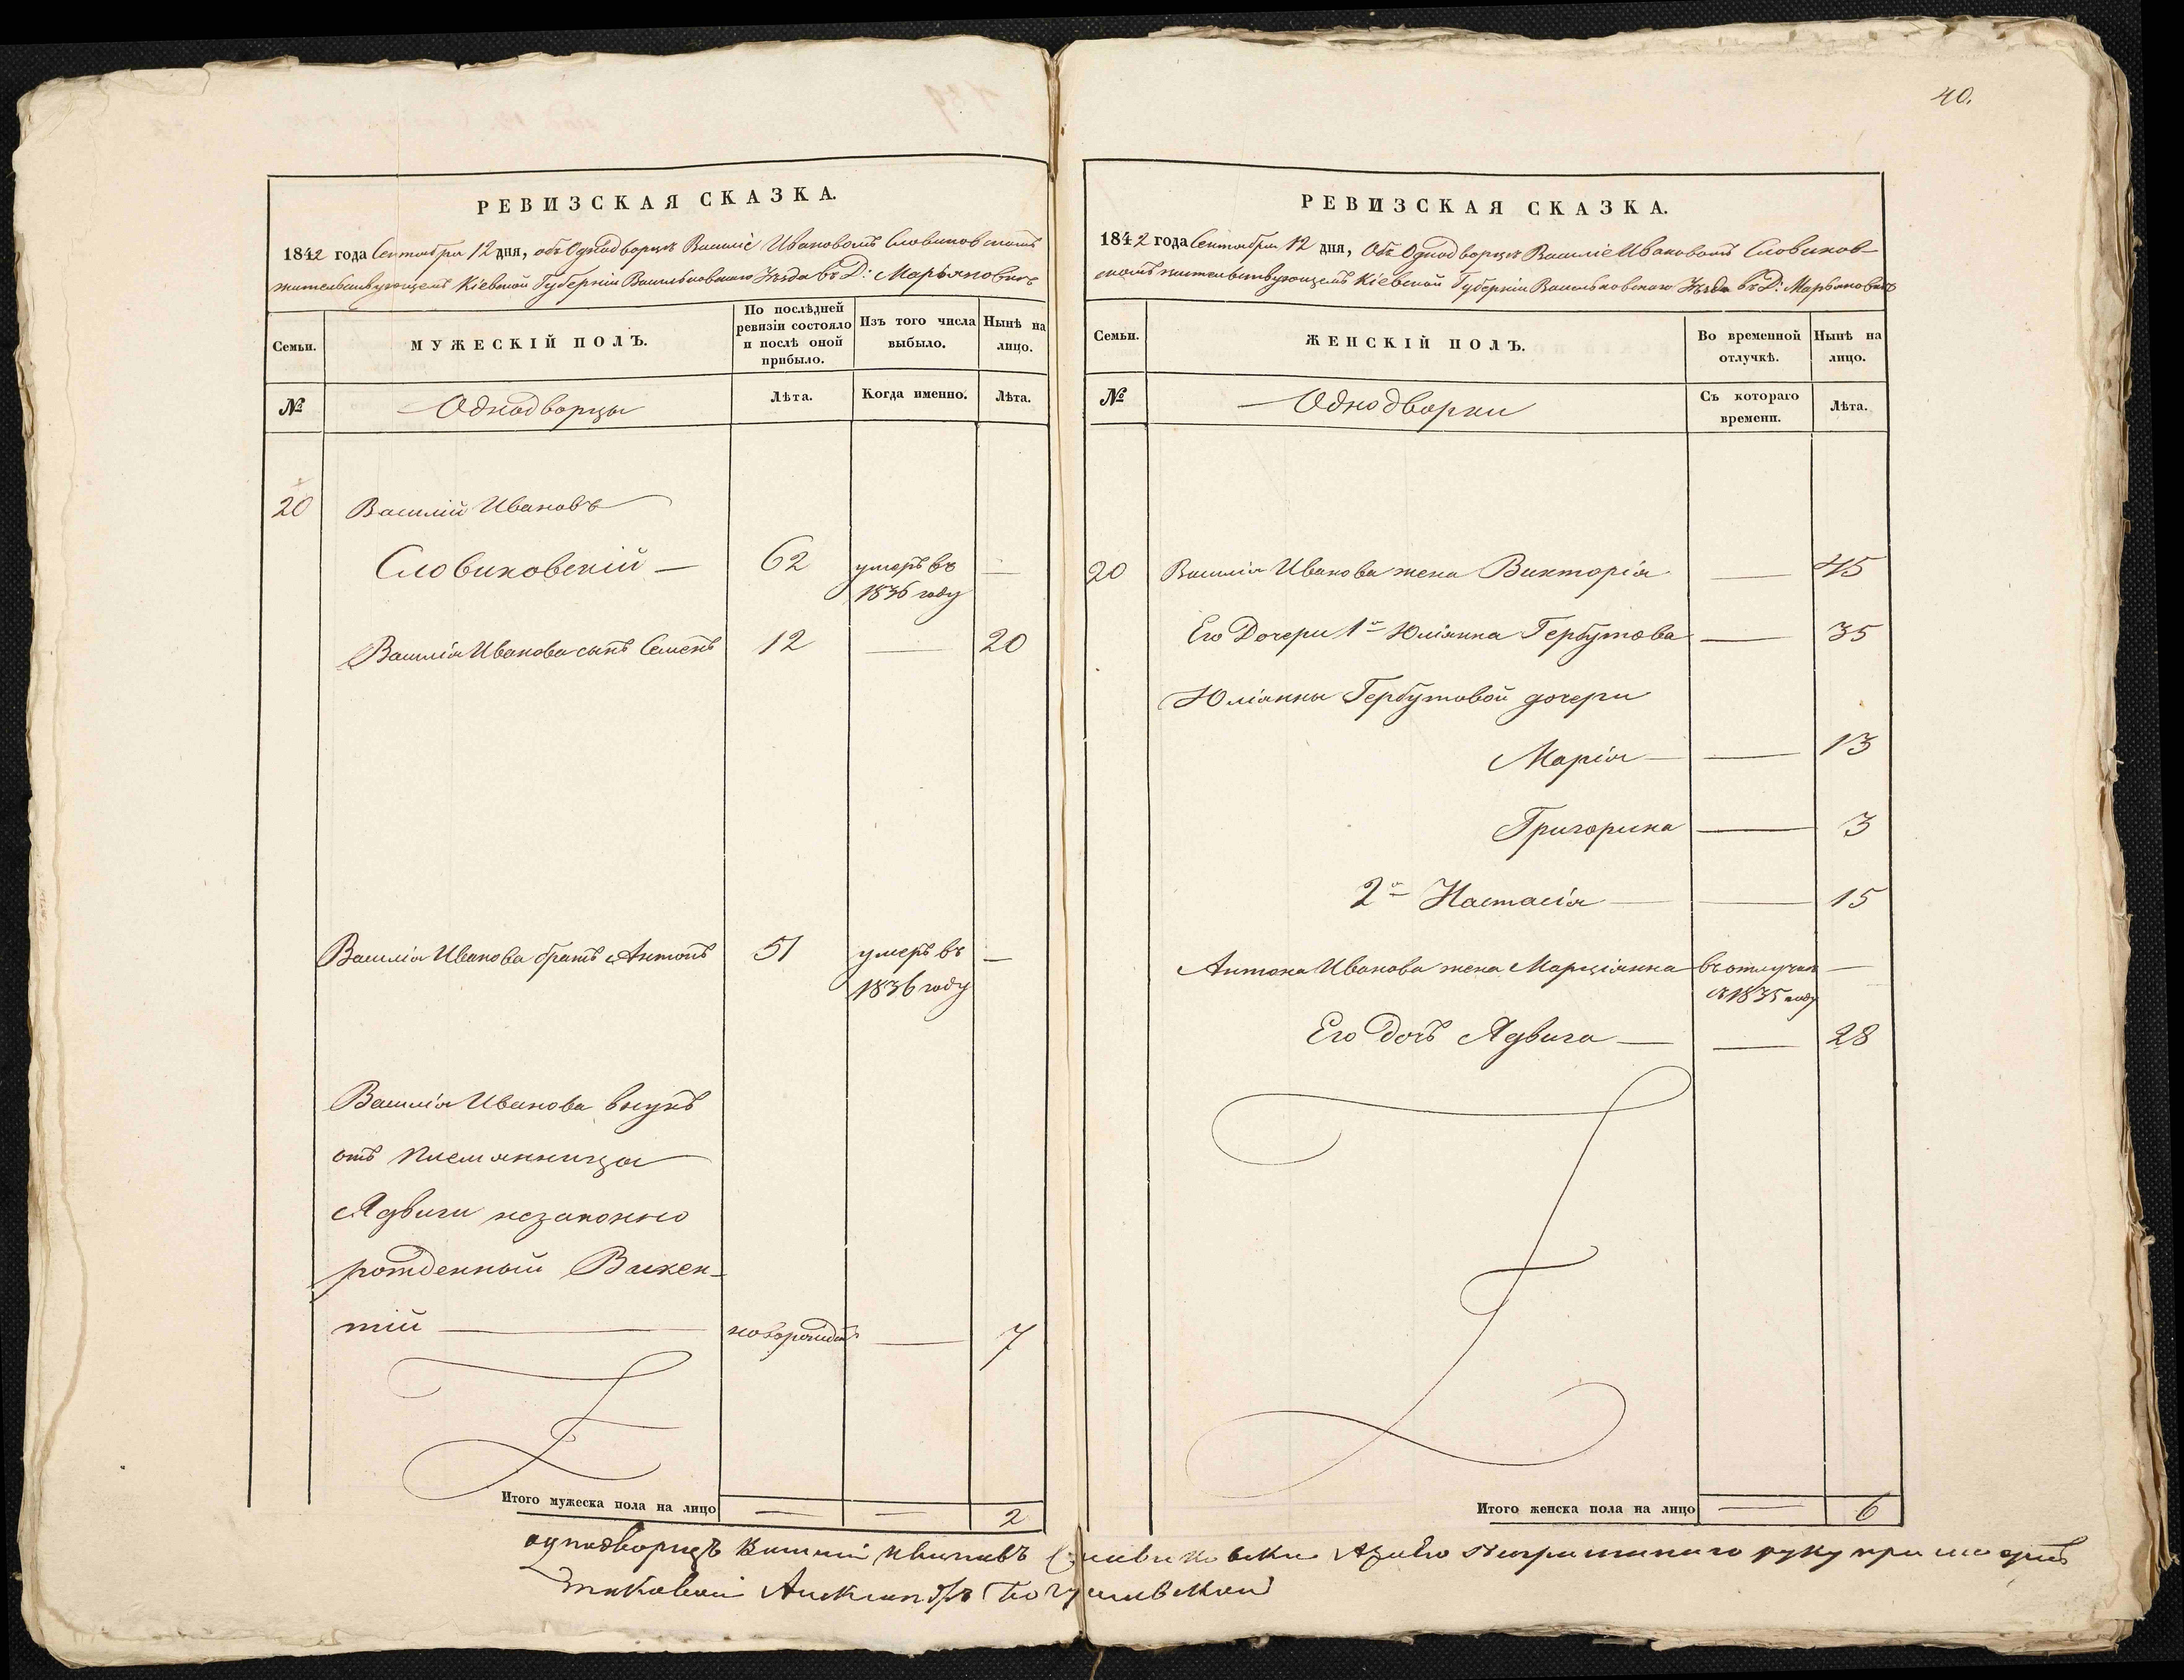 40.
РЕВИЗСКАЯ СКАЗКА.
1842 года Сентября 12 дня, объ Однодворцѣ Василіе Ивановомъ Словиковскомъ
жительствующемъ Кіевской Губерніи Васильковскаго Уѣзда въ Д: Марьяновкѣ
Семьи.
МУЖЕСКІЙ ПОЛЪ.
По послѣдней ревизіи состояло и послѣ оной прибыло.
Изъ того числа выбыло.
Нынѣ на лицо.
№
Однодворцы
Лѣта.
Когда именно.
Лѣта.
20 Василій Ивановъ
Словиковскій — 62 умеръ въ —
1836 году
Василія Иванова сынъ Семенъ 12 — 20
Василія Иванова братъ Антонъ 51 умеръ въ —
1836 году
Василія Иванова внукъ
отъ племянницы
Ядвиги незаконно
рожденный Викен-
тій — новорожден — 7
Итого мужеска пола на лицо — — 2
РЕВИЗСКАЯ СКАЗКА.
1842 года Сентября 12 дня, Объ Однодворцѣ Василіе Ивановомъ Словиков-
скомъ жительствующемъ Кіевской Губерніи Васильковскаго Уѣзда въ Д: Марьяновкѣ
Семьи.
ЖЕНСКІЙ ПОЛЪ.
Во временной отлучкѣ.
Нынѣ на лицо.
№
Однодворки
Съ котораго времени.
Лѣта.
20 Василія Иванова жена Викторія — 45
Его Дочери 1я Юліянна Гербутова — 35
Юліянны Гербутовой дочери
Марія — — 13
Григорина — 3
2я Настасія — — 15
Антона Иванова жена Марціянна въ отлучкѣ —
съ 1835 году
Его Дочь Ядвига — — 28
Итого женска пола на лицо — 6
однодворецъ Василій Ивановъ Словиковски а за его неграматнаго руку приложилъ
таковой Александръ